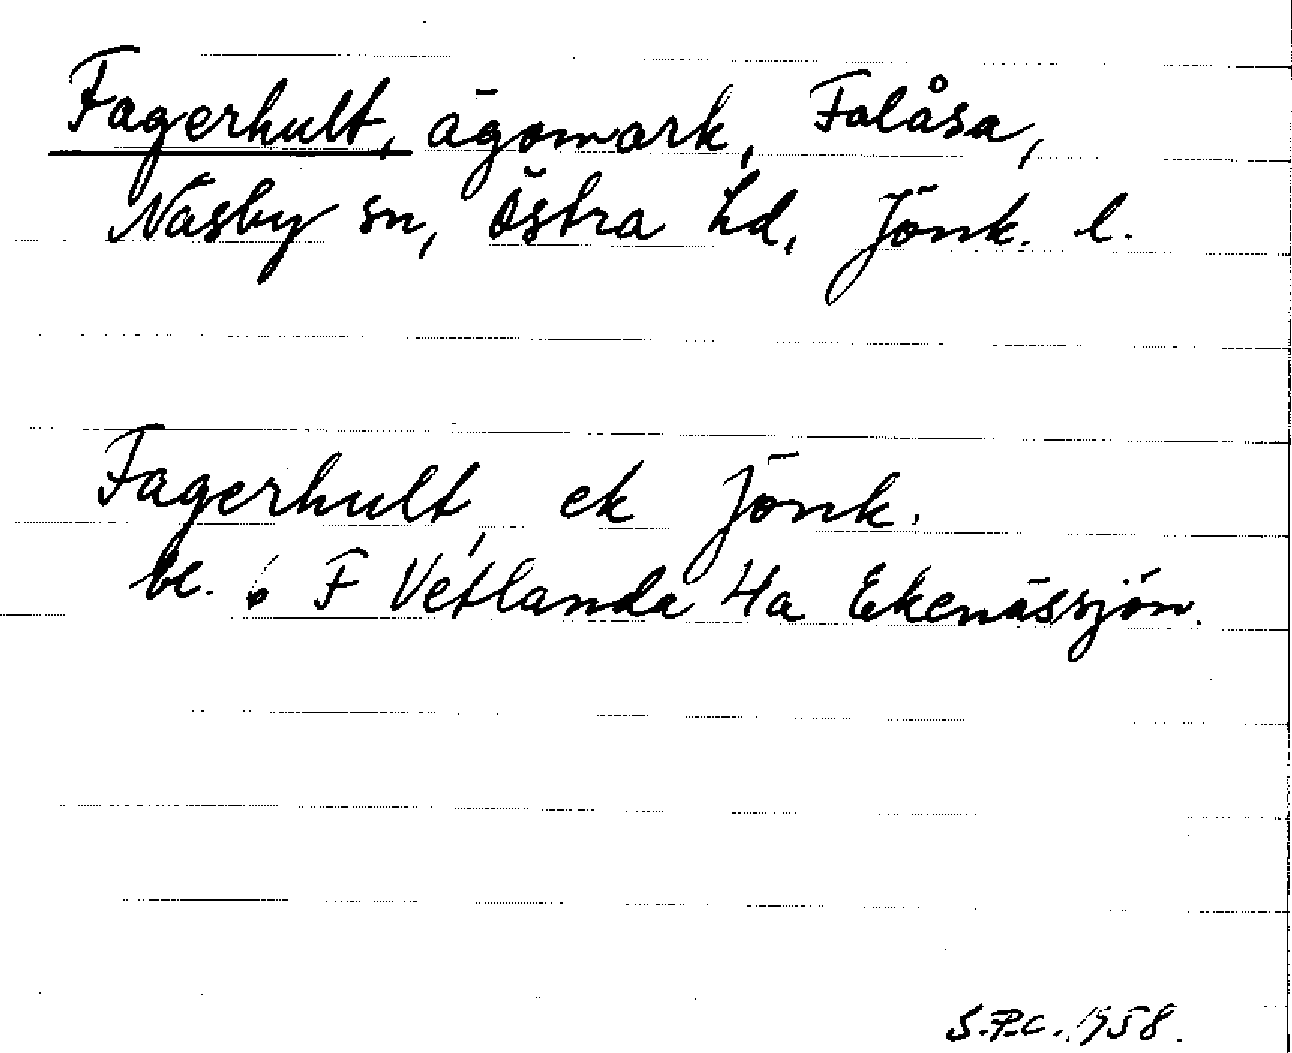 Fagerhult, ägomark, Falåsa,
Näsby sn, Östra hd, Jönk. l.
Fagerhult, ek Jönk.
bl. 6 F Vetlanda 4a Ekenässjön.
S.P.C. 1958.